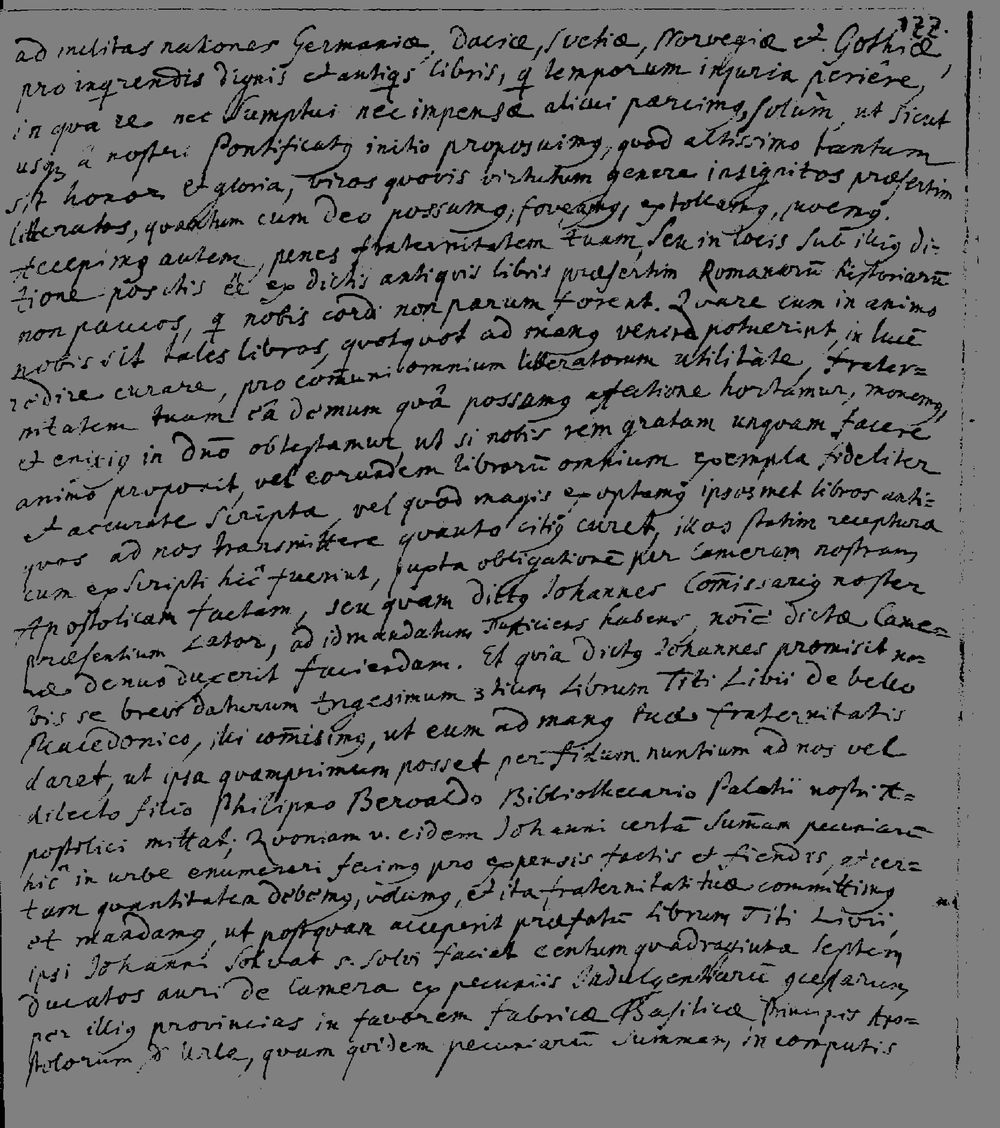 122.
ad inclitas nationes Germaniæ, Daciæ, Svetiæ, Norvegiæ et Gothiæ,
pro inqrendis dignis et antiqs libris, q temporum injuria periêre,
in qua re nec Sumptui nec impensæ alicui parcimq, solùm, ut sicut
usq3 â nostri Pontificatq initio proposuimq, quod altissimo tantum
sit honor et gloria, viros quovis virtutum genere insignitos præsertim
litteratos, quantum cum deo possumq, foveamq, extollamq, juvemq.
Accepimq autem, penes fraternitatem tuam, seu in locis sub illiq di-
tione positis eē ex dictis antiquis libris præsertim Romanarū historiarū
non paucos, q nobis cordi non parum forent. Quare cum in animo
nobis sit tales libros, quotquot ad manq venire potuerint, in lucē
redire curare, pro com̄uni omnium litteratorum utilitate, frater=
nitatem tuam eâ demum quâ possumq affectione hortamur, monemq,
et enixiq in dn̄o obtestamur, ut si nobis rem gratam unquam facere
animo proponit, vel eorundem librorū omnium exempla fideliter
et accurate scripta, vel quod magis exoptamq ipsosmet libros anti-
quos ad nos transmittere quanto citiq curet, illos statim receptura
cum exscripti hic fuerint, juxta obligationē per Cameram nostram
Apostolicam factam, seu quam dictq Johannes Com̄issariq noster
præsentium Lator, ad id mandatum sufficiens habens, noīe dictæ Came=
ræ denuo duxerit faciendam. Et quia dictq Johannes promisit no=
bis se brevi daturum trigesimum 3tium Librum Titi Livii de bello
Macedonico, illi com̄isimq, ut eum ad manq tuæ fraternitatis
daret, ut ipsa quamprimum posset per fidum nuntium ad nos vel
dilecto filio Philippo Beroaldo Bibliothecario Palatii nostri A=
postolici mittat; Quoniam v. eidem Johanni certā Sum̄am pecuniarū
hic in urbe enumerari fecimq pro expensis factis et fiendis, et cer=
tam quantitatem debemq, volumq, et ita fraternitati tuæ committimq
et mandamq, ut postquam acceperit præfatū librum Titi Livii,
ipsi Johanni solvat s. solvi faciat centum quadraginta septem
ducatos auri de Camera ex pecuniis Indulgentiarū
per illiq provincias in favorem fabricæ Basilicæ Principis Apo=
stolorum d Urbe, quam quidem pecuniarū Summam, in computis